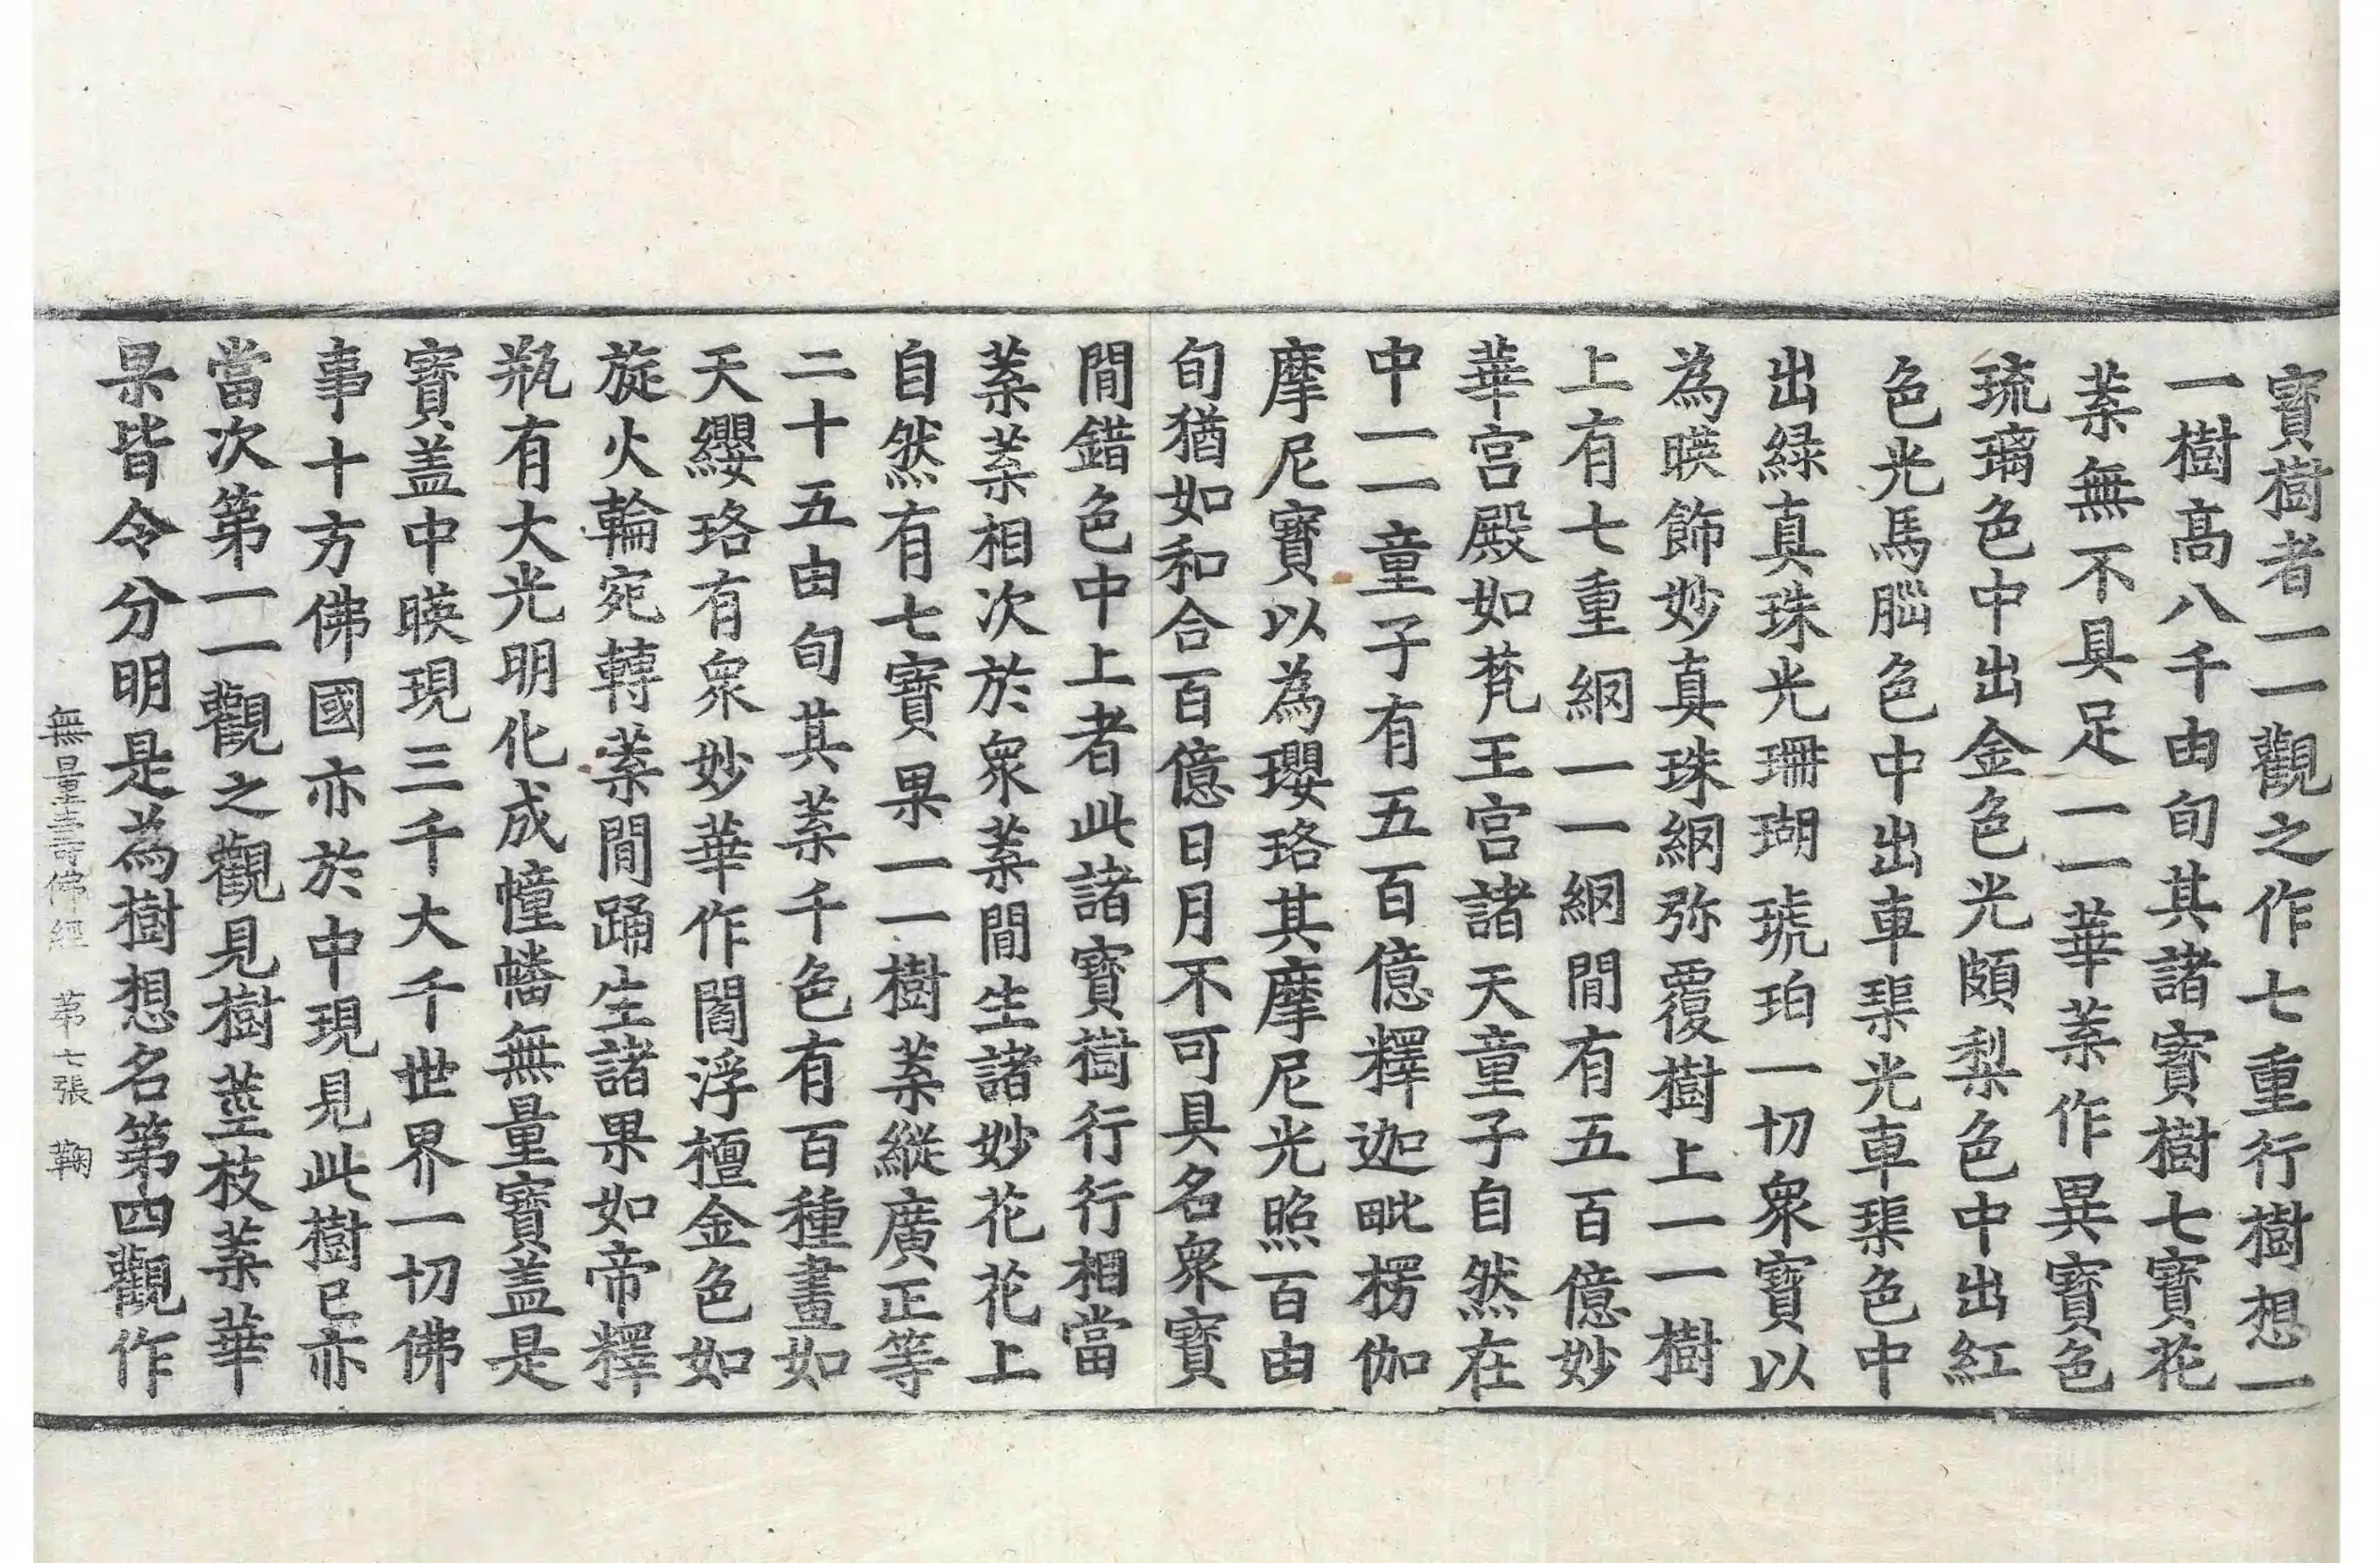 寶樹者一一觀之作七重行樹想一
一樹高八千由旬其諸寶樹七寶花
葉無不具足一一華葉作異寶色
琉璃色中出金色光頗梨色中出紅
色光馬腦色中出車𤦲光車𤦲色中
出緑真珠光珊瑚琥珀一切衆寶以
為暎飾妙真珠網弥覆樹上一一樹
上有七重網一一網間有五百億妙
華宮殿如梵王宮諸天童子自然在
中一一童子有五百億釋迦毗楞伽
摩尼寶以為瓔珞其摩尼光照百由
旬猶如和合百億日月不可具名衆寶
間錯色中上者此諸寶樹行行相當
葉葉相次於衆葉間生諸妙花花上
自然有七寶果一一樹葉縱廣正等
二十五由旬其葉千色有百種畫如
天纓珞有衆妙華作閻浮檀金色如
旋火輪宛轉葉間踊生諸果如帝釋
瓶有大光明化成幢幡無量寶盖是
寶盖中暎現三千大千世界一切佛
事十方佛國亦於中現見此樹已亦
當次第一一觀之觀見樹莖枝葉華
果皆令分明是為樹想名第四觀作
無量壽佛經 苐七張 鞠